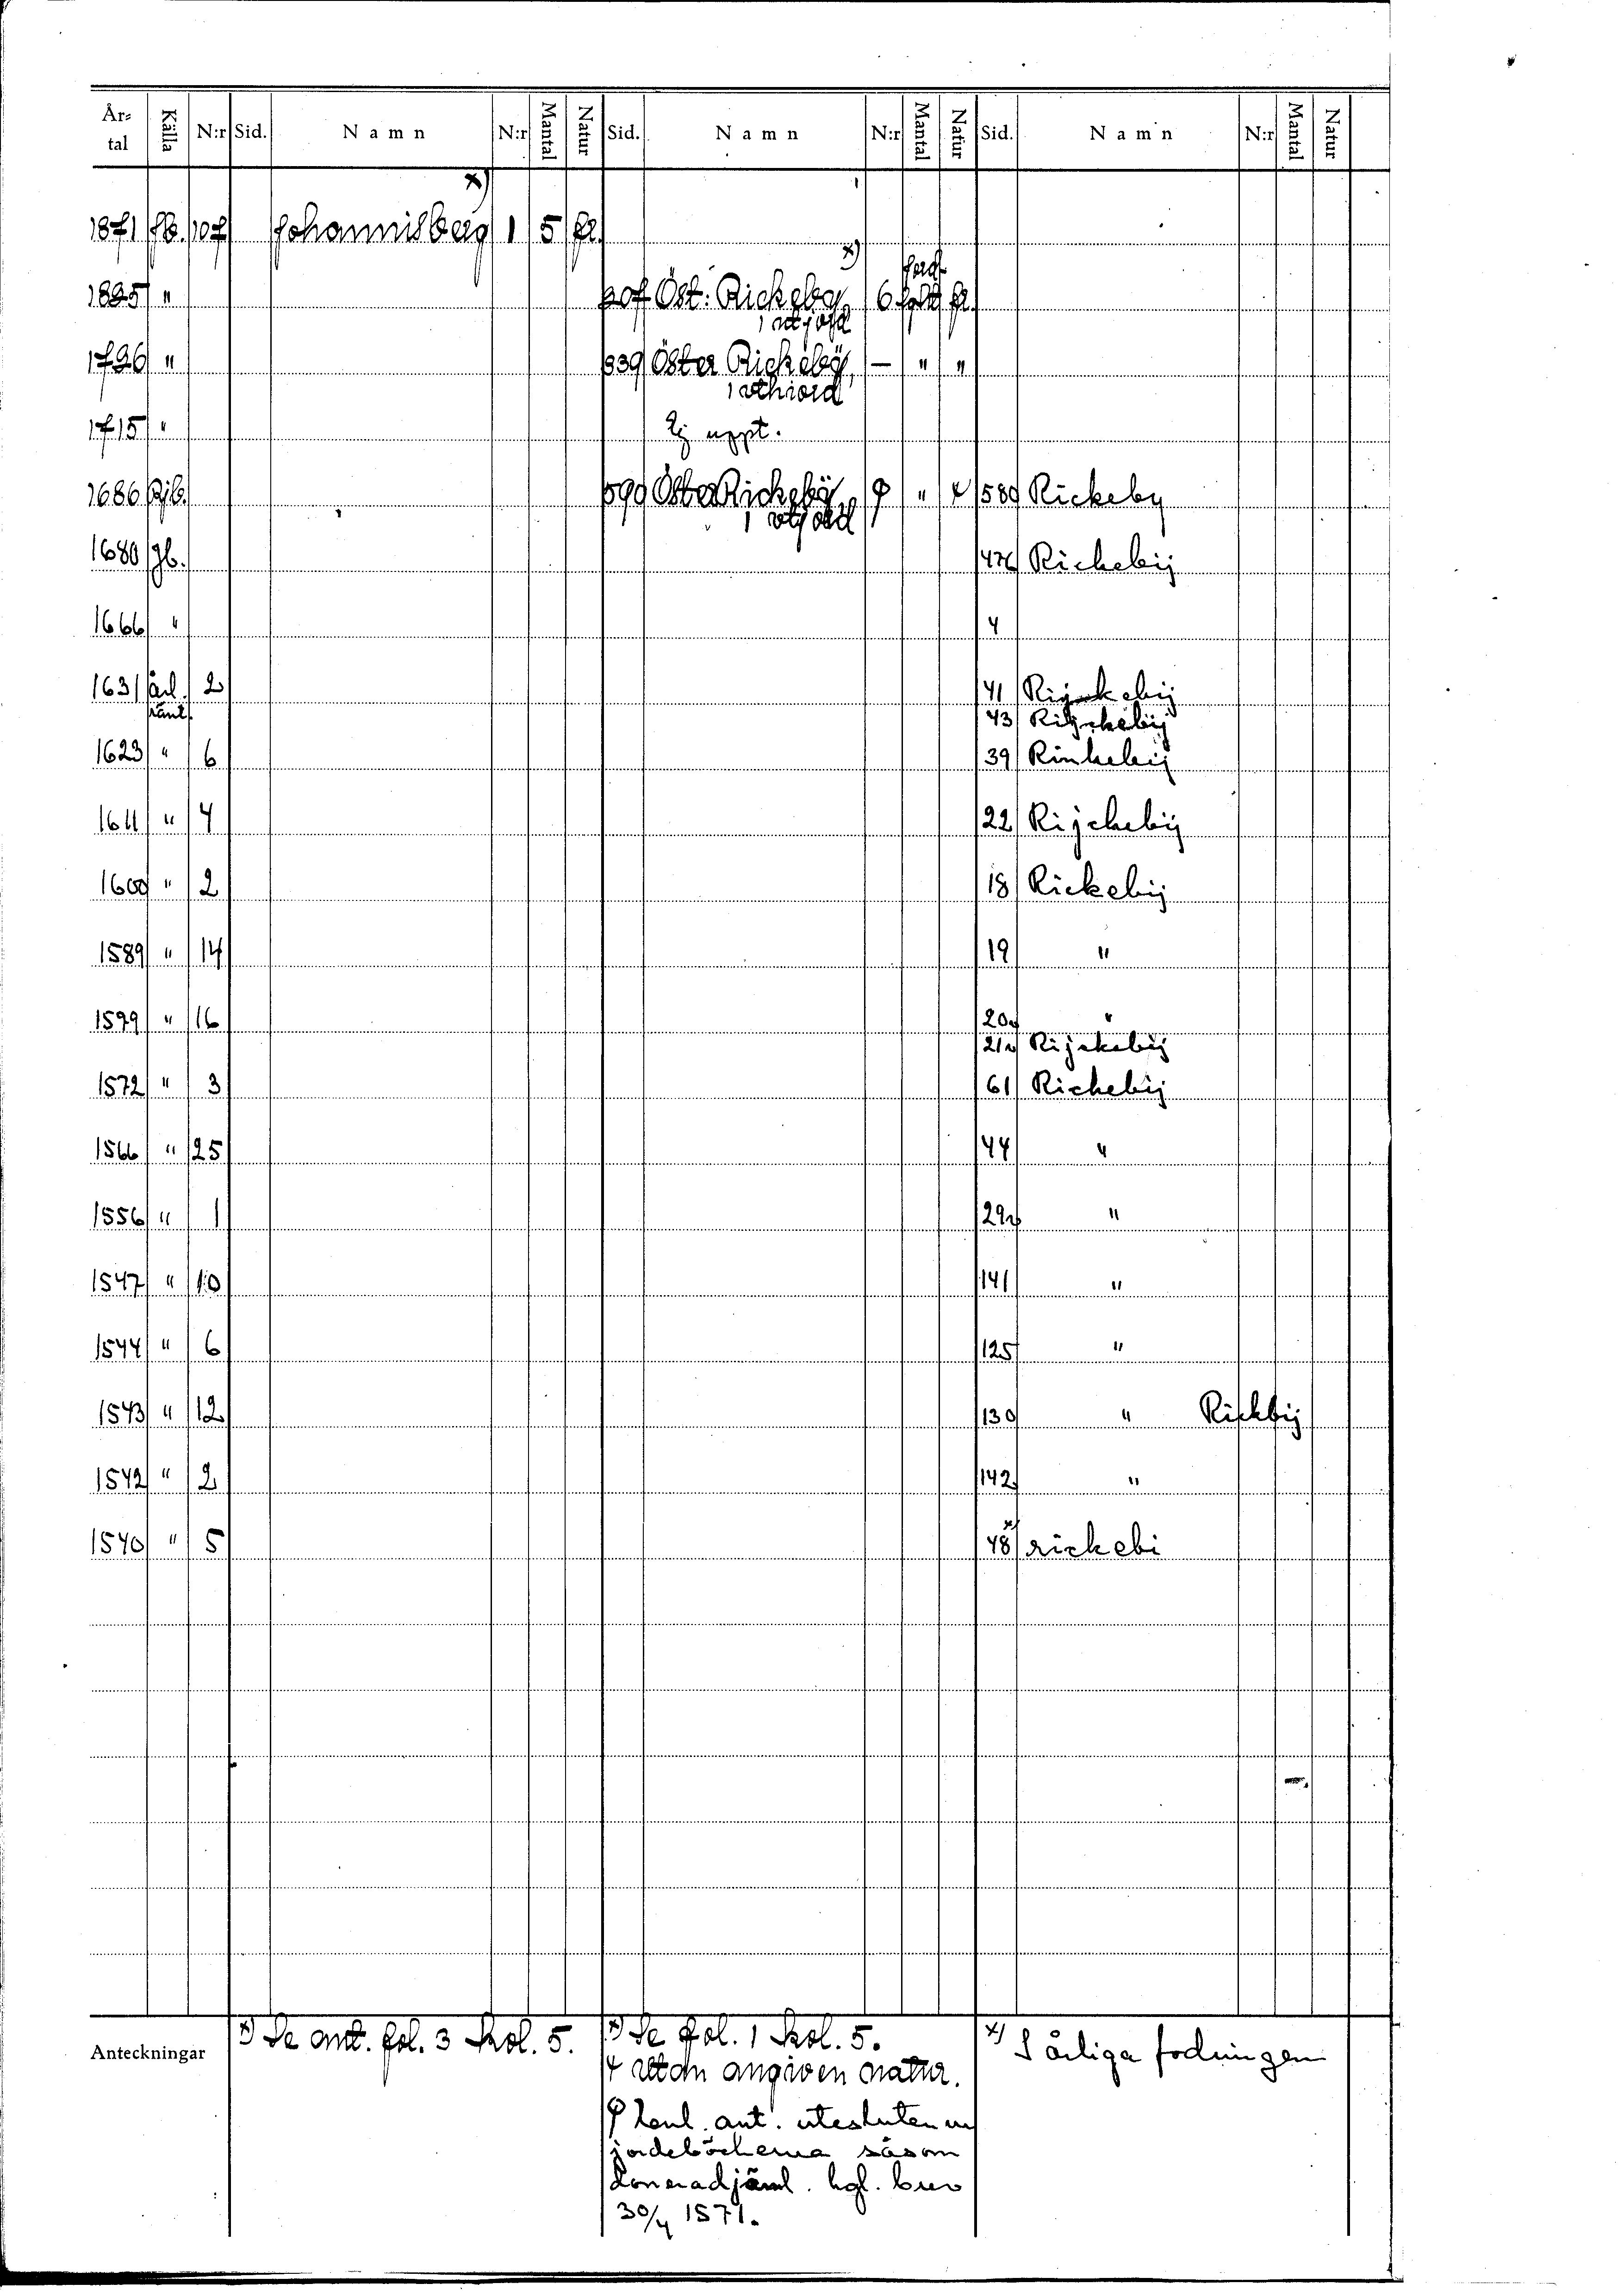 År-tal Källa N:r Sid. Namn N:r Mantal Natur Sid. Namn N:r Mantal Natur Sid. Namn N:r Mantal Natur
x)
1871 jb. 107 Johannisberg 1 5 fr.
x)
1825 " 207 Öst: Rickeby 6 fr.
1 utjord
1726 " 339 Öster Rickebÿ, — " "
1 vthiord
1715 " Ej uppt.
1686 Rjb. 590 Öster Rickebÿ φ " 4 580 Rickeby
1 vtjord
1680 jb. 476 Rickebij
1666 " 4
1631 årl. 2 41 Rijckebij
ränt. 43 Rijckebij
1623 " 6 39 Rinkebij
1611 " 4 22 Rijckebij
1600 " 2 18 Rickebij
1589 " 14 19 "
1579 " 16 20v "
21v Rijckebij
1572 " 3 61 Rickebij
1566 " 25 44 "
1556 " 1 29v "
1547 " 10 141 "
1544 " 6 125 "
1543 " 12 130 " Rickbij
1542 " 2 142 "
1540 " 5 48 x) rickebi
Anteckningar
x) Se ant. fol. 3 kol. 5.
x) Se fol. 1 kol. 5.
4 utan angiven natur.
φ Enl. ant. utesluten ur
jordeböckerna såsom
donerad jäml. kgl. brev
30/4 1571.
x) I årliga fodringen